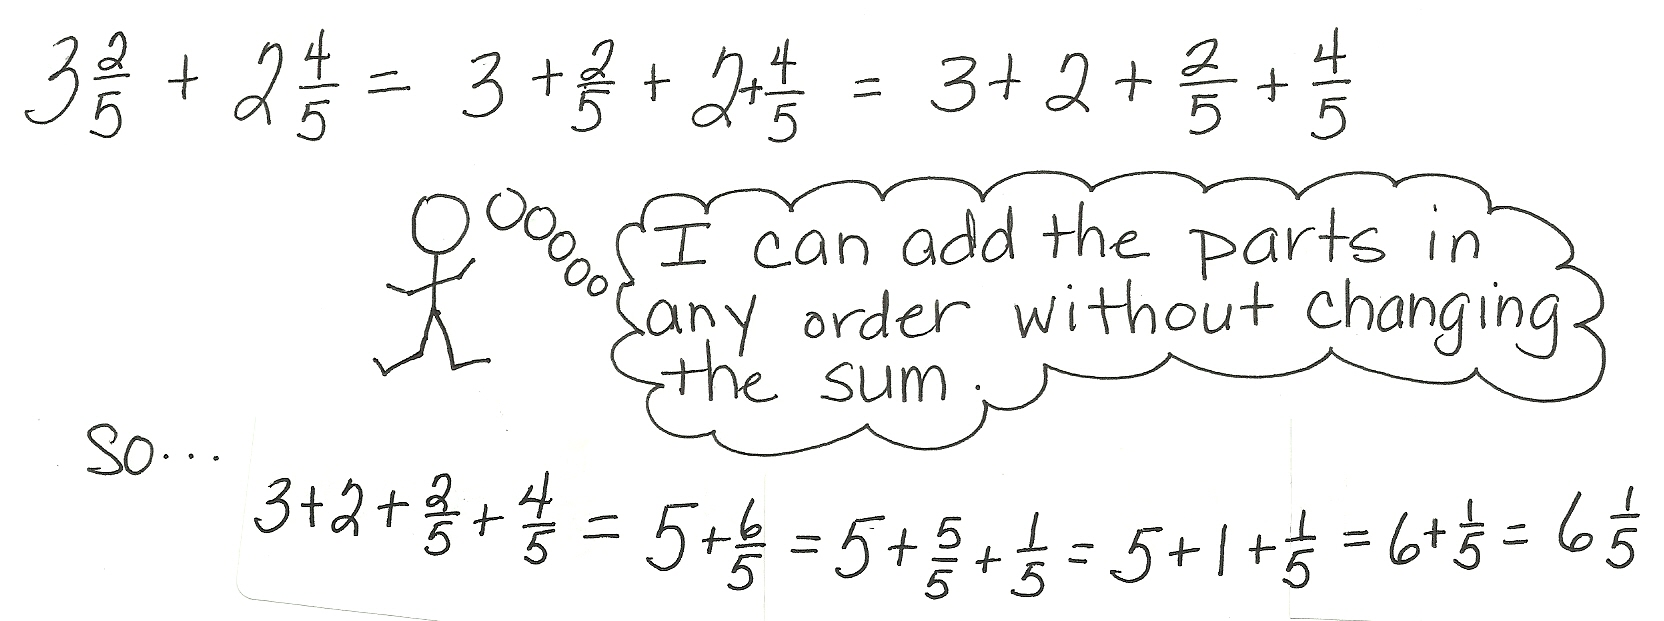 3 2/5 + 2 4/5 = 3 + 2/5 + 2 + 4/5 = 3 + 2 + 2/5 + 4/5
I can add the parts in
any order without changing
the sum.
so...
3 + 2 + 2/5 + 4/5 = 5 + 6/5 = 5 + 5/5 + 1/5 = 5 + 1 + 1/5 = 6 + 1/5 = 6 1/5